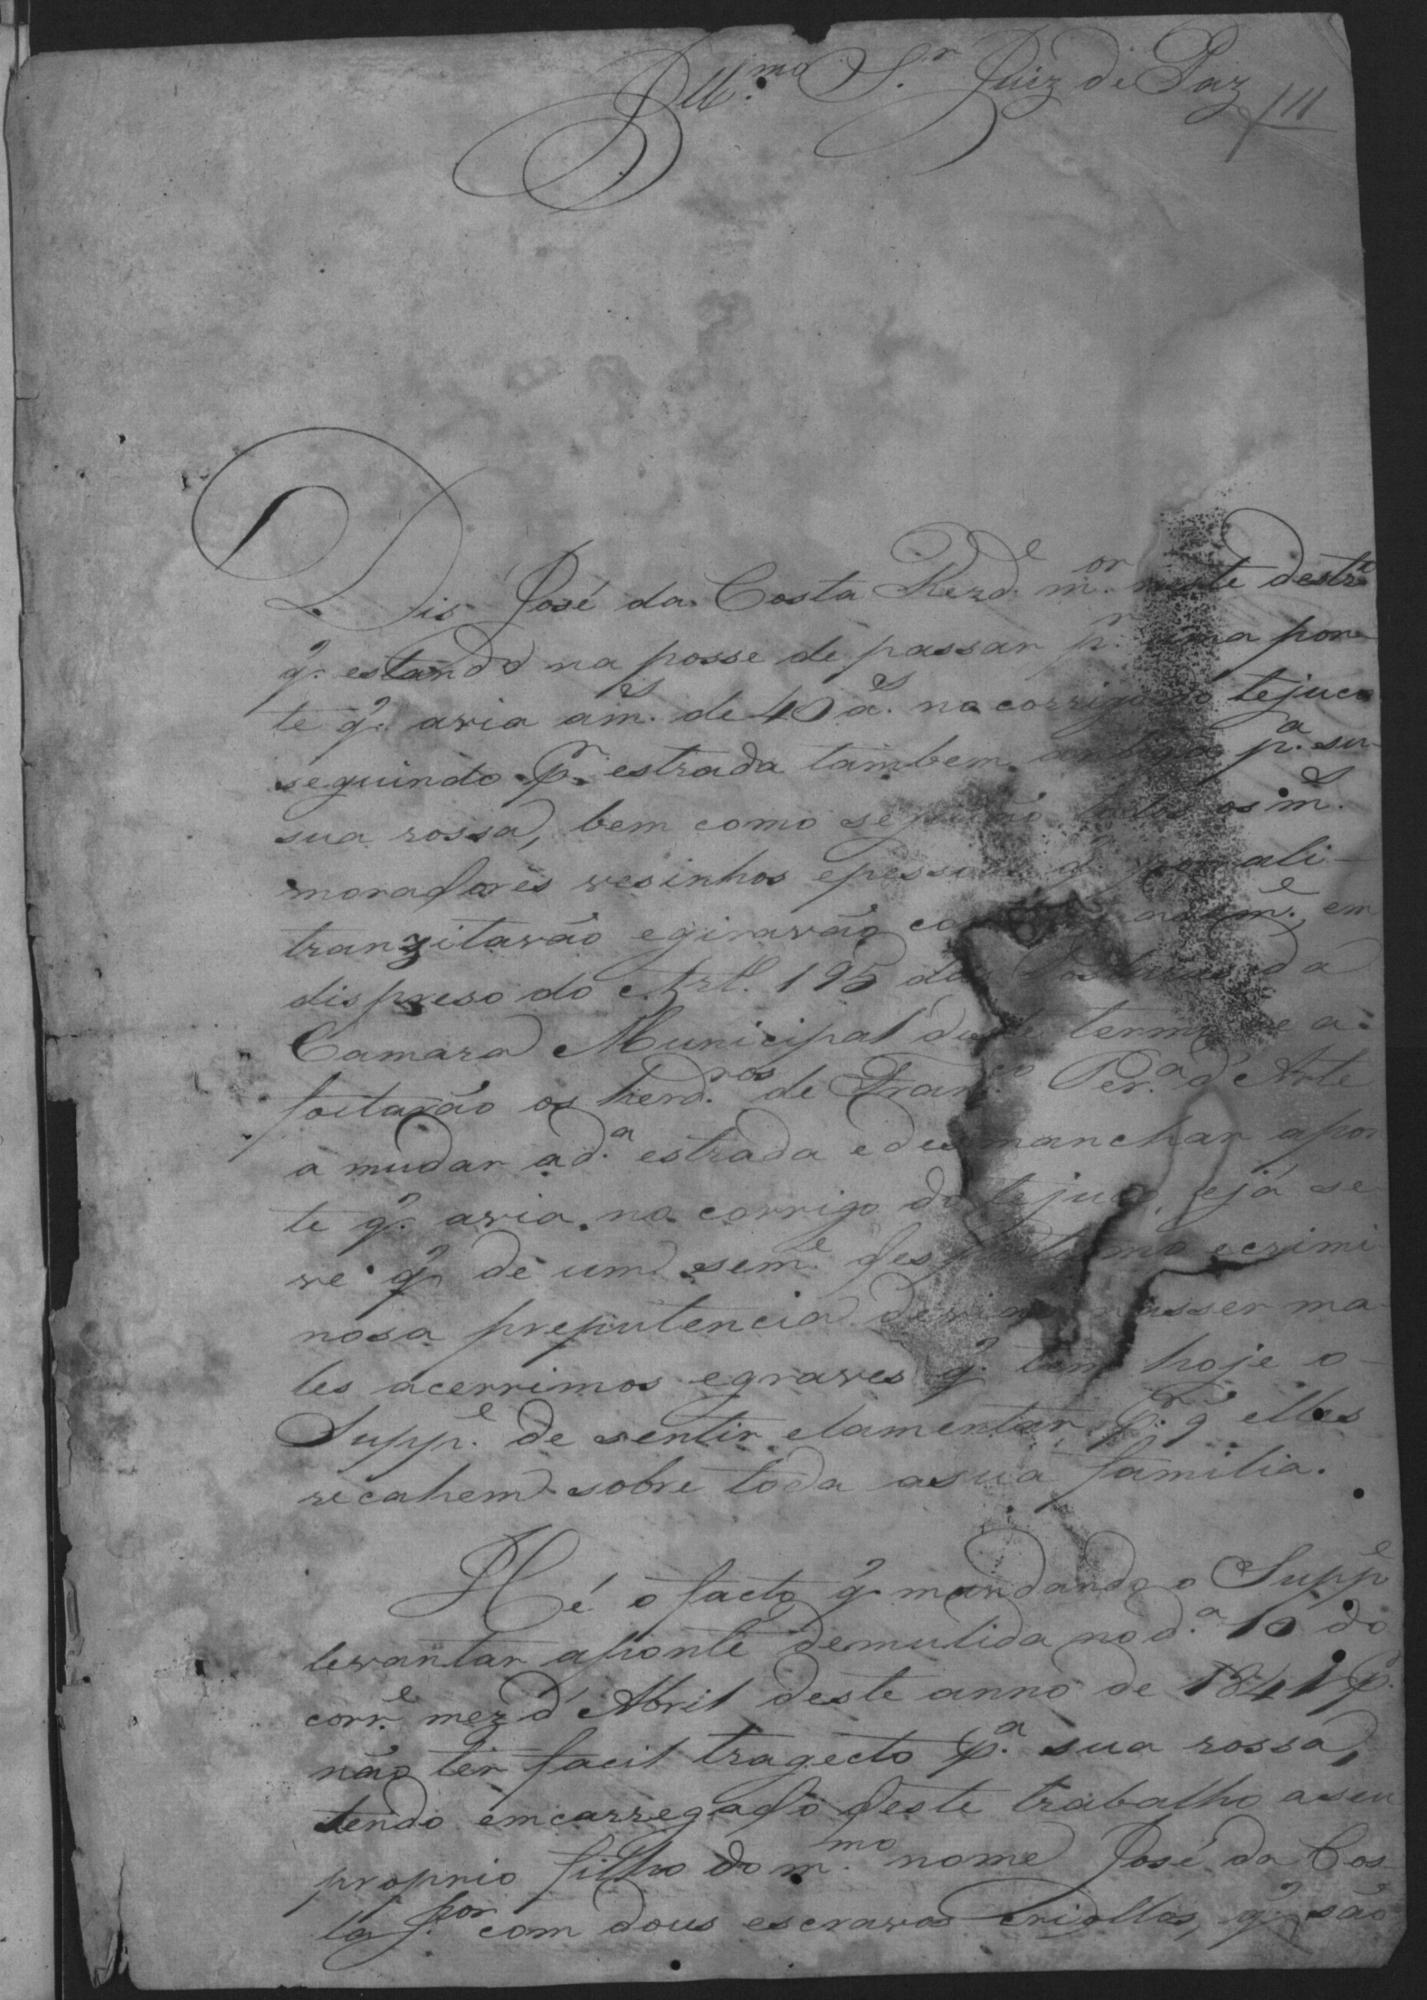 Ill.mo S.r Juiz de Paz
11
Dis José da Costa Rezd.e m.or neste destr.o
q. estando na posse de passar p.r uma pon-
te q. avia a m.s de 40 a.s no corrigo do tejuco
seguindo p.r estrada tambem antiga p.a su-
sua rossa, bem como seguião todos os m.s
moradores vesinhos e pessoas q. por ali-
tranzitavão e giravão em
dispreso do Art.o 195 das Posturas da
Camara Municipal deste termo se a-
foitarão os herd.ros de Fran.co Per.a d'Arte
a mudar a d.a estrada e desmanchar a pon
te q. avia no corrigo do tejuco, e já se
ve q. de um sem.e despotismo e crimi
nosa preputencia devião nasser ma-
les acerrimos e graves q. tem hoje o-
Supp.e de sentir e lamentar p.r q. elles
recahem sobre toda a sua familia.
Hé o facto q. mandando o Supp.e
levantar a ponte demulida no d.a 10 do
corr.e mez d'Abril deste anno de 1841 p.
não ter facil tragecto p.a sua rossa,
tendo emcarregado deste trabalho a seu
proprio filho do m.mo nome José da Cos-
ta J.or com dous escravos criollos, q. são